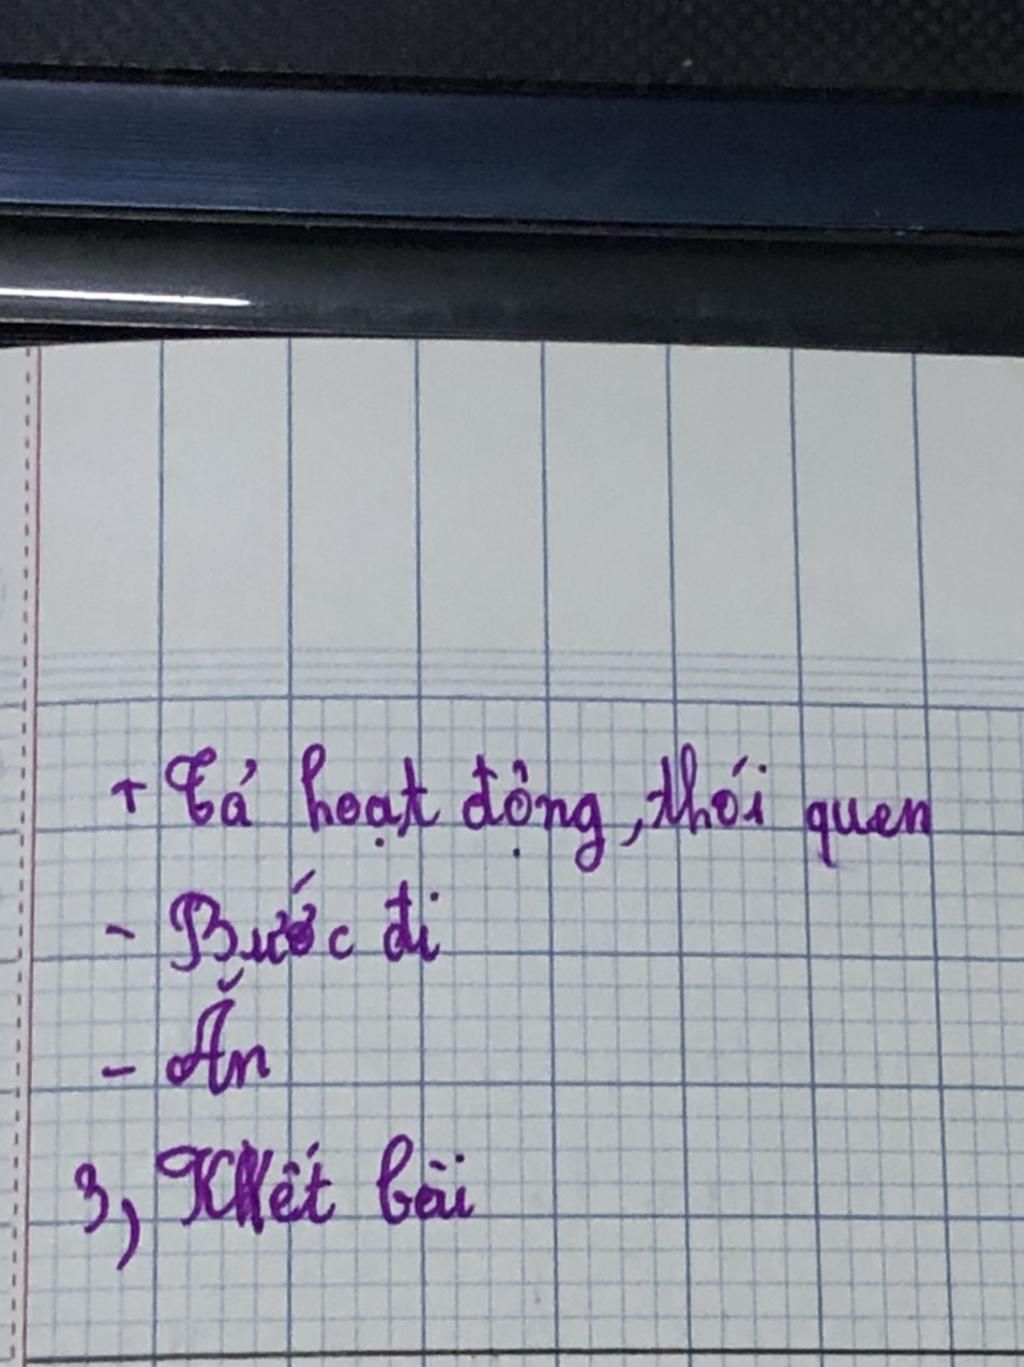 + Tả hoạt động, thói quen
- Bước đi
- Ăn
3, Kết bài